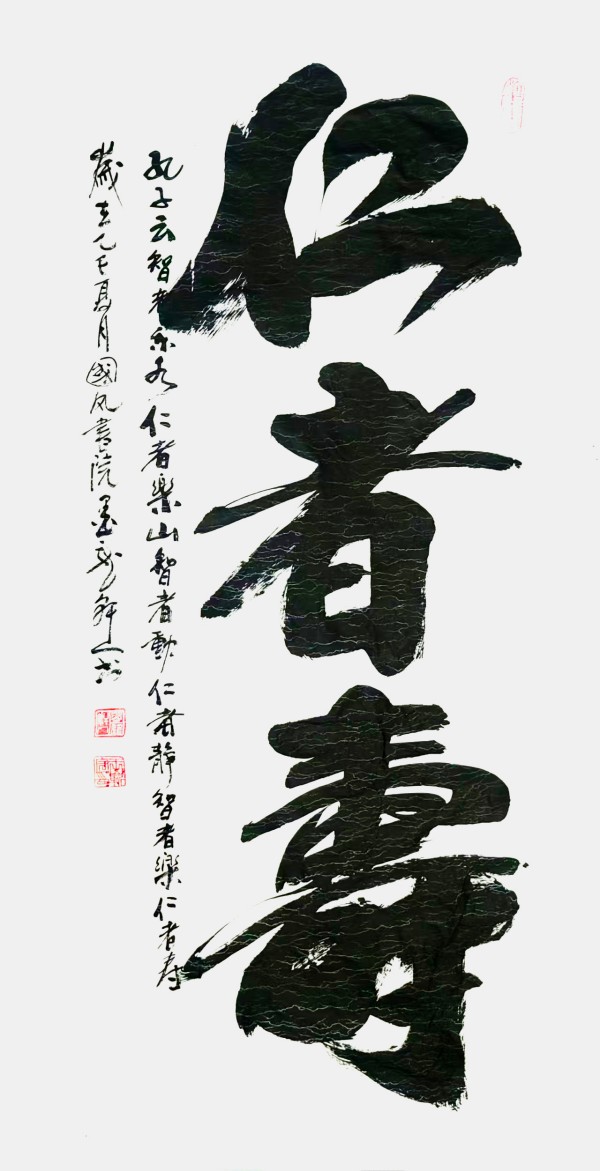 仁者壽
孔子云智者乐水仁者樂山智者動仁者靜智者樂仁者寿
歲在乙未夏月國风書院